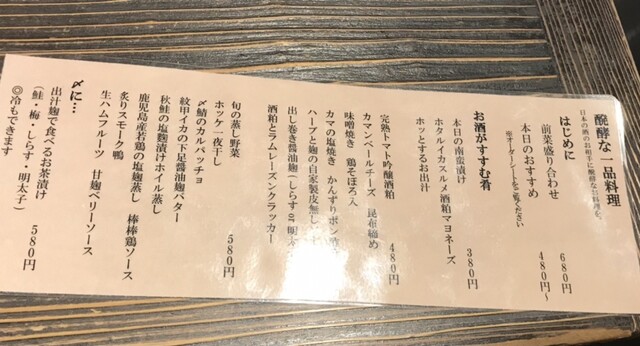 醗酵な一品料理
日本の酒のお相手に醗酵なお料理を。
はじめに
前菜盛り合わせ 680円
本日のおすすめ 480円〜
※オーダーシートをご覧ください
お酒がすすむ肴
本日の南蛮漬け
ホタルイカスルメ酒粕マヨネーズ
ホッとするお出汁
380円
完熟トマト吟醸酒粕
カマンベールチーズ 昆布締め
味噌焼き 鶏そぼろ入
カマの塩焼き かんずりポン酢
ハーブと麹の自家製皮無し
出し巻き醤油麹 しらす or 明太
酒粕とラムレーズンクラッカー
480円
旬の蒸し野菜
ホッケ一夜干し
〆鯖のカルパッチョ
紋甲イカの下足醤油麹バター
秋鮭の塩麹漬けホイル蒸し
鹿児島産若鶏の塩麹蒸し 棒棒鶏ソース
炙りスモーク鴨
生ハムフルーツ 甘麹ベリーソース
580円
〆に…
出汁麹で食べるお茶漬け
(鮭・梅・しらす・明太子) 580円
◎冷もできます